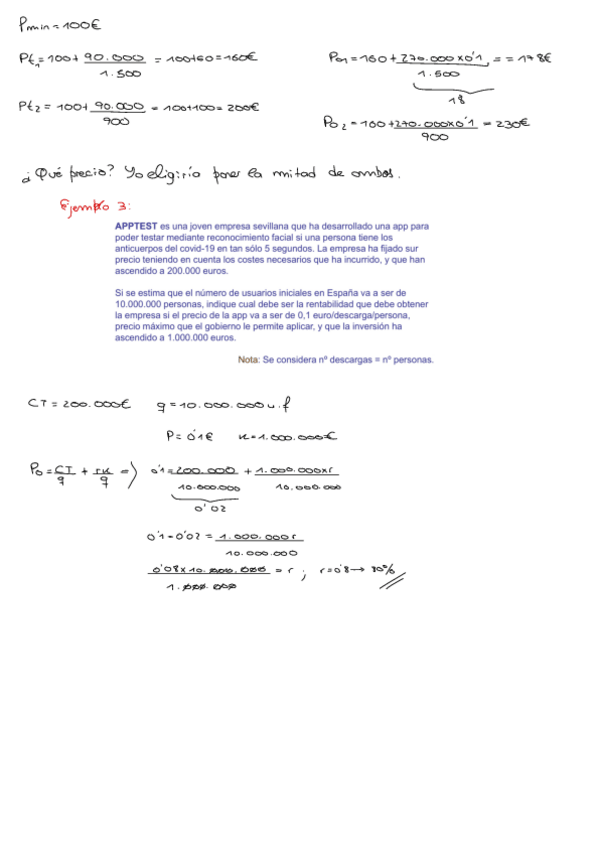 Pmin = 100€
Pt₁ = 100 + 90.000 / 1.500 = 100+60 = 160€
Po1 = 160 + 270.000 x 0'1 / 1.500 = = 178€
18
Pt₂ = 100 + 90.000 / 900 = 100+100 = 200€
Po₂ = 160 + 270.000x0'1 / 900 = 230€
¿Qué precio? Yo eligiría poner la mitad de ambos.
Ejemplo 3:
APPTEST es una joven empresa sevillana que ha desarrollado una app para
poder testar mediante reconocimiento facial si una persona tiene los
anticuerpos del covid-19 en tan sólo 5 segundos. La empresa ha fijado sur
precio teniendo en cuenta los costes necesarios que ha incurrido, y que han
ascendido a 200.000 euros.
Si se estima que el número de usuarios iniciales en España va a ser de
10.000.000 personas, indique cual debe ser la rentabilidad que debe obtener
la empresa si el precio de la app va a ser de 0,1 euro/descarga/persona,
precio máximo que el gobierno le permite aplicar, y que la inversión ha
ascendido a 1.000.000 euros.
Nota: Se considera nº descargas = nº personas.
CT = 200.000€ q = 10.000.000 u.f
P = 0'1€ K = 1.000.000€
Po = CT / q + rK / q => 0'1 = 200.000 / 10.000.000 + 1.000.000xr / 10.000.000
0'02
0'1 - 0'02 = 1.000.000r / 10.000.000
0'08 x 10.000.000 / 1.000.000 = r ; r = 0'8 → 80%